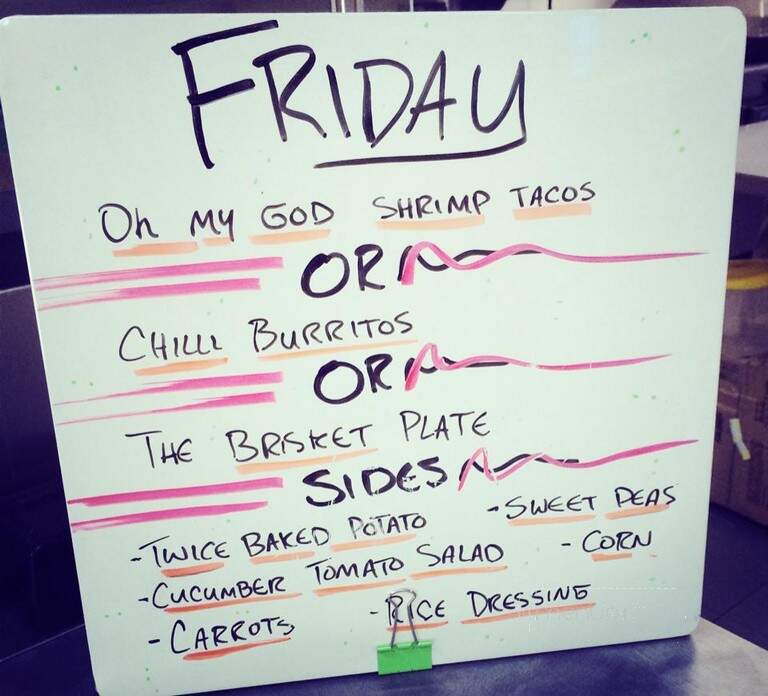 FRIDAY
Oh MY GOD SHRIMP TACOS
OR
CHILLI BURRITOS
OR
THE BRISKET PLATE
SIDES
-TWICE BAKED POTATO
-SWEET PEAS
-CUCUMBER TOMATO SALAD
- CORN
- CARROTS
-RICE DRESSING